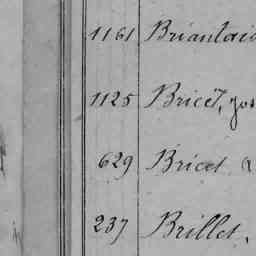 1161 Briantais
1125 Bricet, Jos
629 Bricet
237 Brillet,